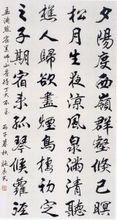 夕陽度西嶺群壑倏已暝松
月生夜涼風泉滿清聽
樵人歸欲盡煙鳥棲初定
之子期宿來孤琴候蘿徑
孟浩然宿業師山房待丁大不至
丙子暮秋